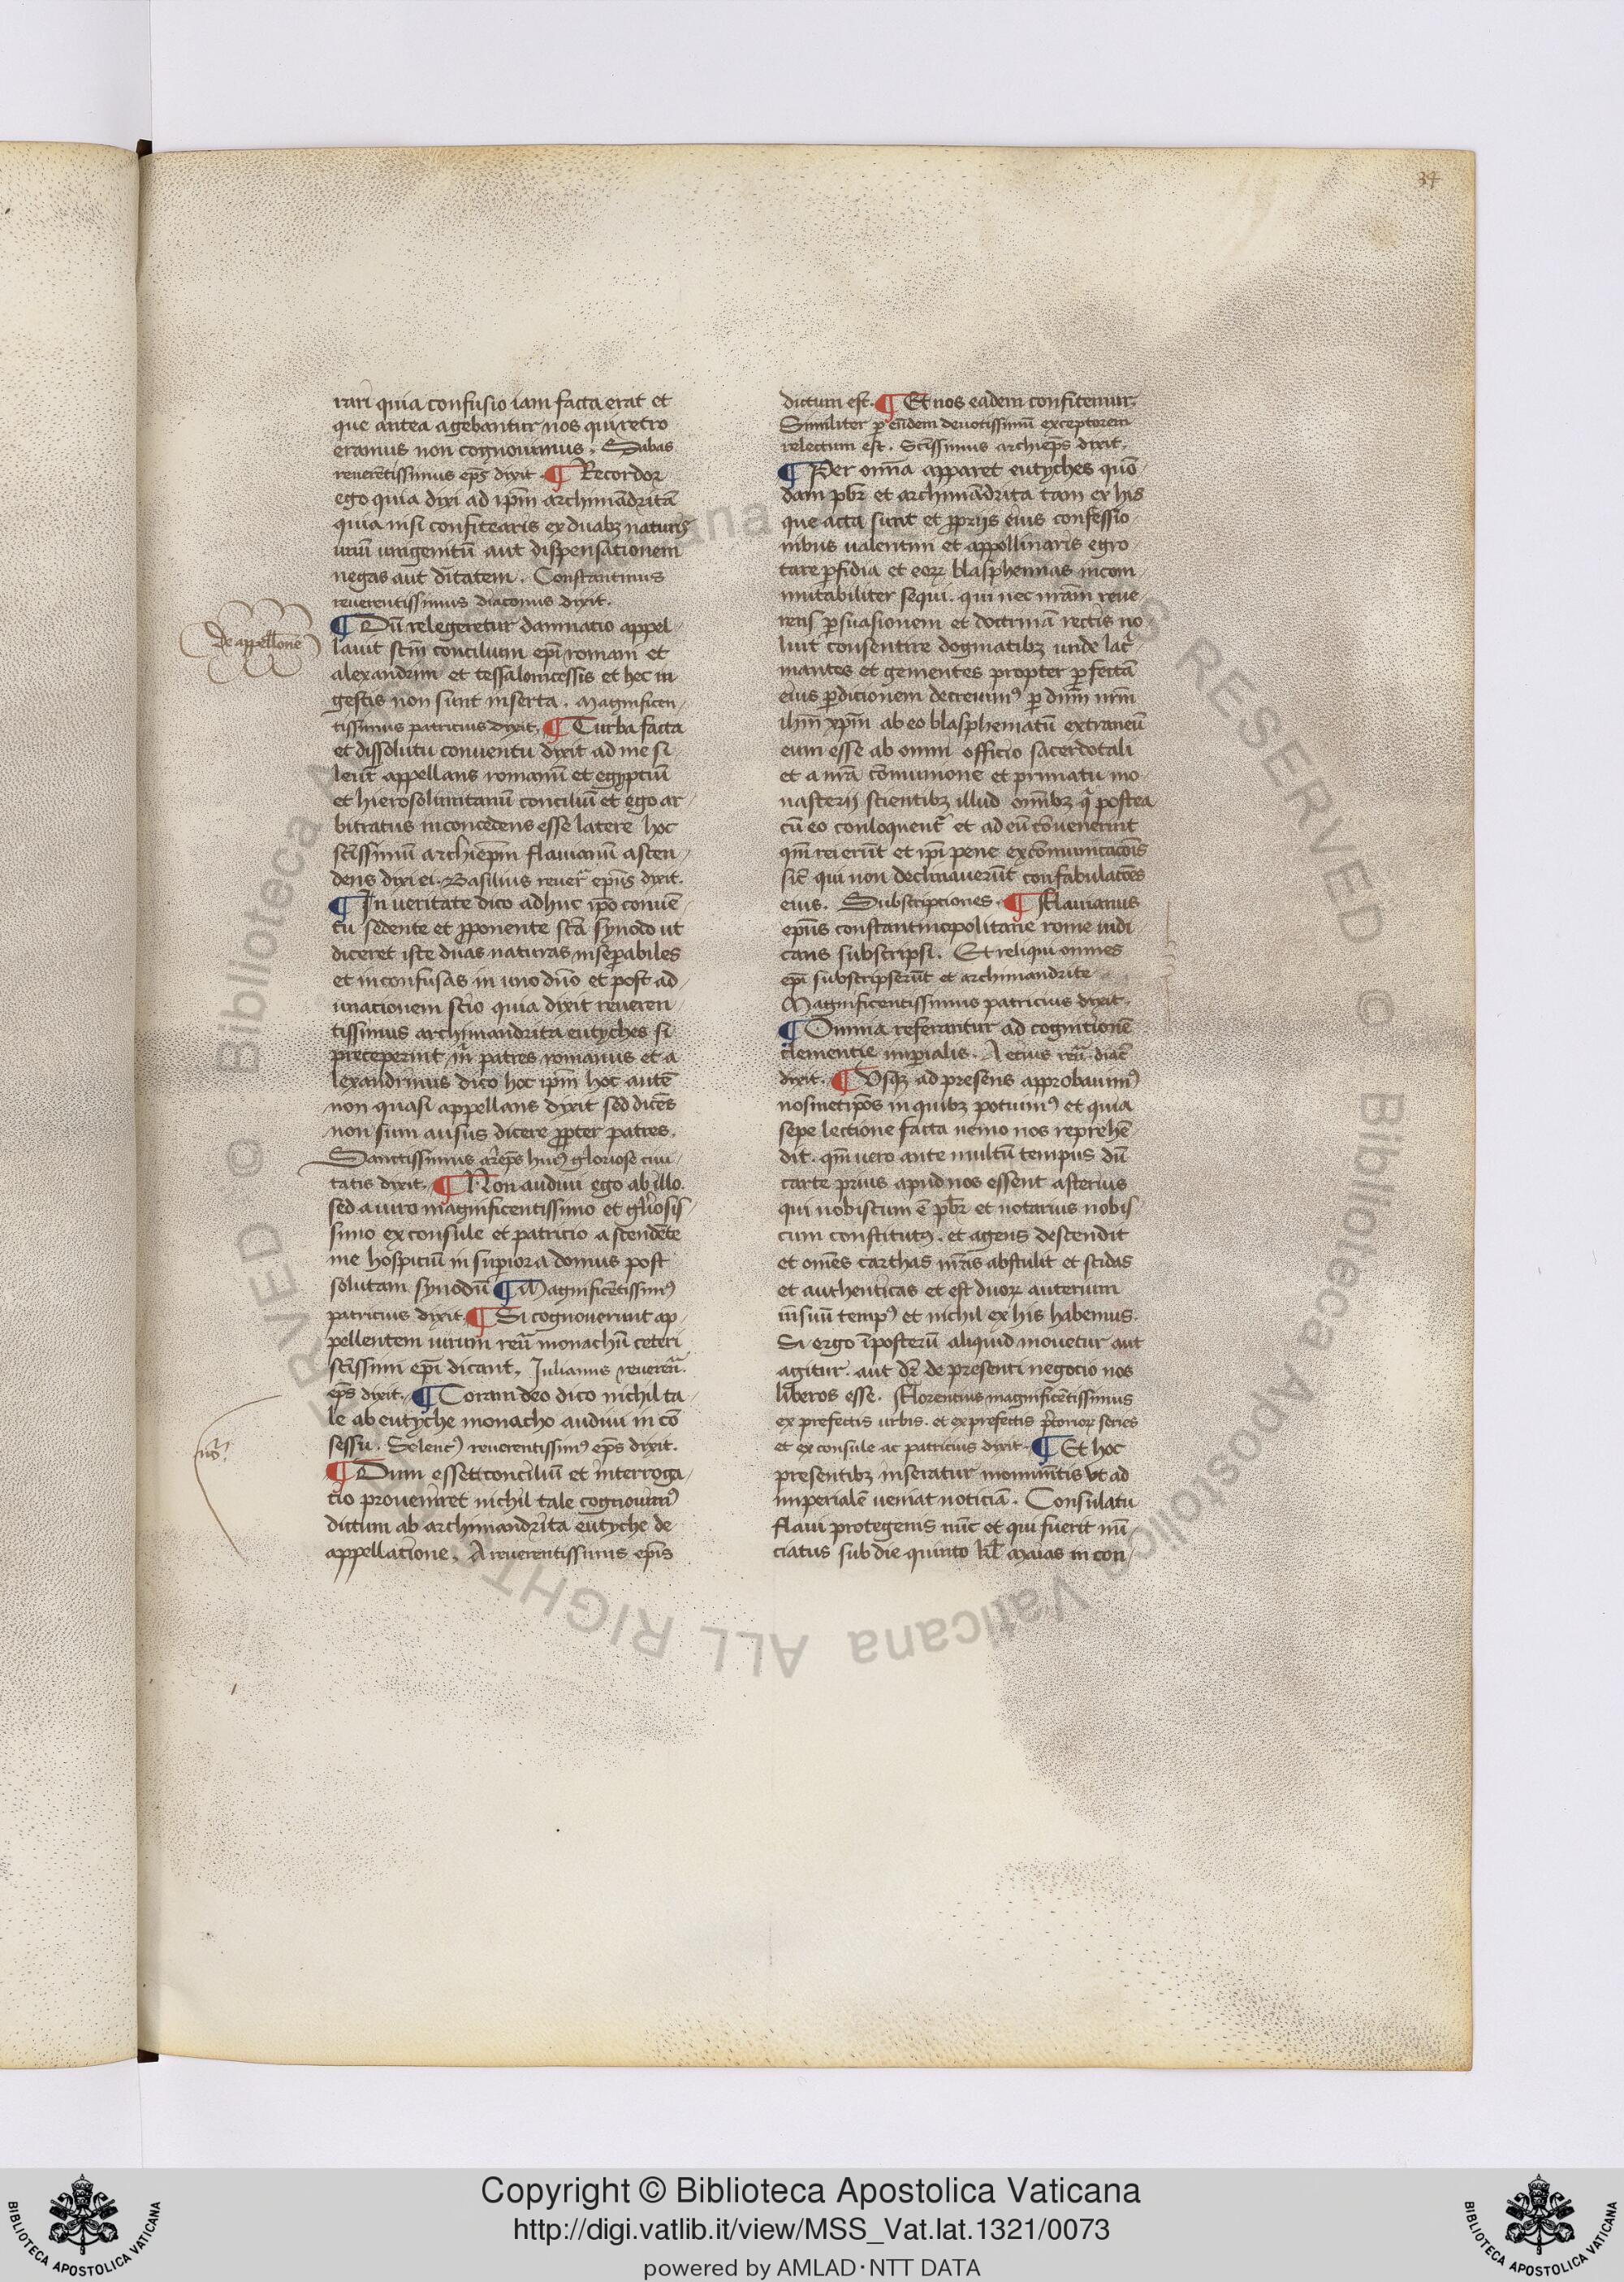 34
rari quia confusio iam facta erat et
que antea agebantur nos qui retro
eramus non cognouimus. Sabas
reuerētissimus ep̄s dixit ¶ Recordor
ego quia dixi ad ip̄m archimādritā
quia nisi confitearis ex duabꝫ naturis
unū unigenitū aut dispensationem
negas aut ditatem. Constantinus
reuerentissimus diaconus dixit.
¶ Dū relegeretur damnatio appel
lauit scm̄ concilium ep̄i romani et
alexandrini et tessalonicessis et hec in
gestis non sunt inserta. Magnificen
tissimus patricius dixit. ¶ Turba facta
et dissolutu conuentu dixit ad me si
leut̄ appellans romanū et egyptiū
et hierosolimitanū conciliū et ego ar
bitratus inconcedens esse latere hoc
sc̄issimū archiep̄m flauianū ascen
dens dixi ei. Basilius reuer̄ ep̄us dixit.
¶ In ueritate dico adhuc ip̄o conuē
tu sedente et ꝓponente sc̄a synodo ut
diceret iste duas naturas insep̄abiles
et inconfusas in uno dn̄o et post ad
unacionem scio quia dixit reueren
tissimus archimandrita eutyches si
preceperint m̄ patres romanus et a
lexandrinus dico hoc ip̄m hoc autē
non quasi appellans dixit sed dicēs
non sum ausus dicere ꝓpter patres.
Sanctissimus ar̄ep̄s huiꝰ gloriose ciui
tatis dixit. ¶ Non audiui ego ab illo.
sed a uiro magnificentissimo et gl̄iosis
simo ex consule et patricio ascendēte
me hospiciū in sup̄iora domus post
solutam synodū ¶ Magnificētissimꝰ
patricius dixit ¶ Si cognouerunt ap
pellentem uirum reu̅ monachū ceteri
sc̄issimi ep̄i dicant. Iulianus reueren̄.
ep̄s dixit. ¶ Coram deo dico nichil ta
le ab eutyche monacho audiui in cō
sessu. Seleucꝰ reuerentissimꝰ ep̄s dixit.
¶ Dum esset conciliū et interroga
tio proueniret nichil tale cognouimꝰ
dictum ab archimandrita eutyche de
appellatione. A reuerentissimis ep̄is
De appellōne
no̅
dictum est. ¶ Et nos eadem confitemur.
Similiter ꝑ eūdem deuotissimū exceptorem
relectum est. Sc̄issimus archiep̄s dixit.
¶ Per om̄ia apparet eutyches quō
dam pb̄r et archimādrita tam ex his
que acta sunt et ꝓprijs eius confessio
nibus ualentini et appollinaris egro
tare ꝑfidia et eoꝝ blasphemias incom
mutabiliter sequi. qui nec nr̄am reue
rens ꝑsuasionem et doctrinā rectis no
luit consentire dogmatibꝫ unde lac̄
mantes et gementes propter ꝑfectā
eius ꝑdicionem decreuimꝰ ꝑ dn̄m nr̄m
ihm̄ xp̄m ab eo blasphematū extraneū
eum esse ab omni officio sacerdotali
et a nr̄a cōmunione et primatu mo
nasterij scientibꝫ illud om̄ibꝫ q̄ postea
cū eo conloquent̄ et ad eū cōuenerint
qm̄ rei erūt et ip̄i pene excōmunicacōis
sic̄ qui non declinauerūt confabulacōes
eius. Subscriptiones. ¶ Flauianus
ep̄us constantinopolitane rome iudi
cans subscripsi. Et reliqui omnes
ep̄i subscripserūt et archimandrite
Magnificentissimus patricius dixit.
¶ Omnia referantur ad cognitionē
clementie imperialis. Aecius reu̅ diac̄
dixit. ¶ Vsqꝫ ad presens approbauimꝰ
nosmetip̄os in quibꝫ potuimꝰ et quia
sepe lectione facta nemo nos reprehē
dit. qm̄ uero ante multū tempus dū
carte prius apud nos essent asterius
qui nobiscum ē pb̄r et notarius nobis
cum constitutꝰ. et agens descendit
et om̄es carthas nr̄as abstulit et scidas
et authenticas et est duoꝝ anterium
in suū tempꝰ et nichil ex his habemus.
Si ergo īposterū aliquid mouetur aut
agitur. aut dr̄ de presenti negocio nos
liberos esse. Florentius magnificētissimus
ex prefectis urbis. et ex prefectis p̄torioꝝ series
et ex consule ac patricius dixit. ¶ Et hoc
presentibꝫ inseratur monum̄tis vt ad
imperialē ueniat noticiā. Consulatu
flaui protegenis nūc et qui fuerit nū
ciatus sub die quinto kl̄ maias in con
Copyright © Biblioteca Apostolica Vaticana
http://digi.vatlib.it/view/MSS_Vat.lat.1321/0073
powered by AMLAD·NTT DATA
BIBLIOTECA APOSTOLICA VATICANA
BIBLIOTECA APOSTOLICA VATICANA